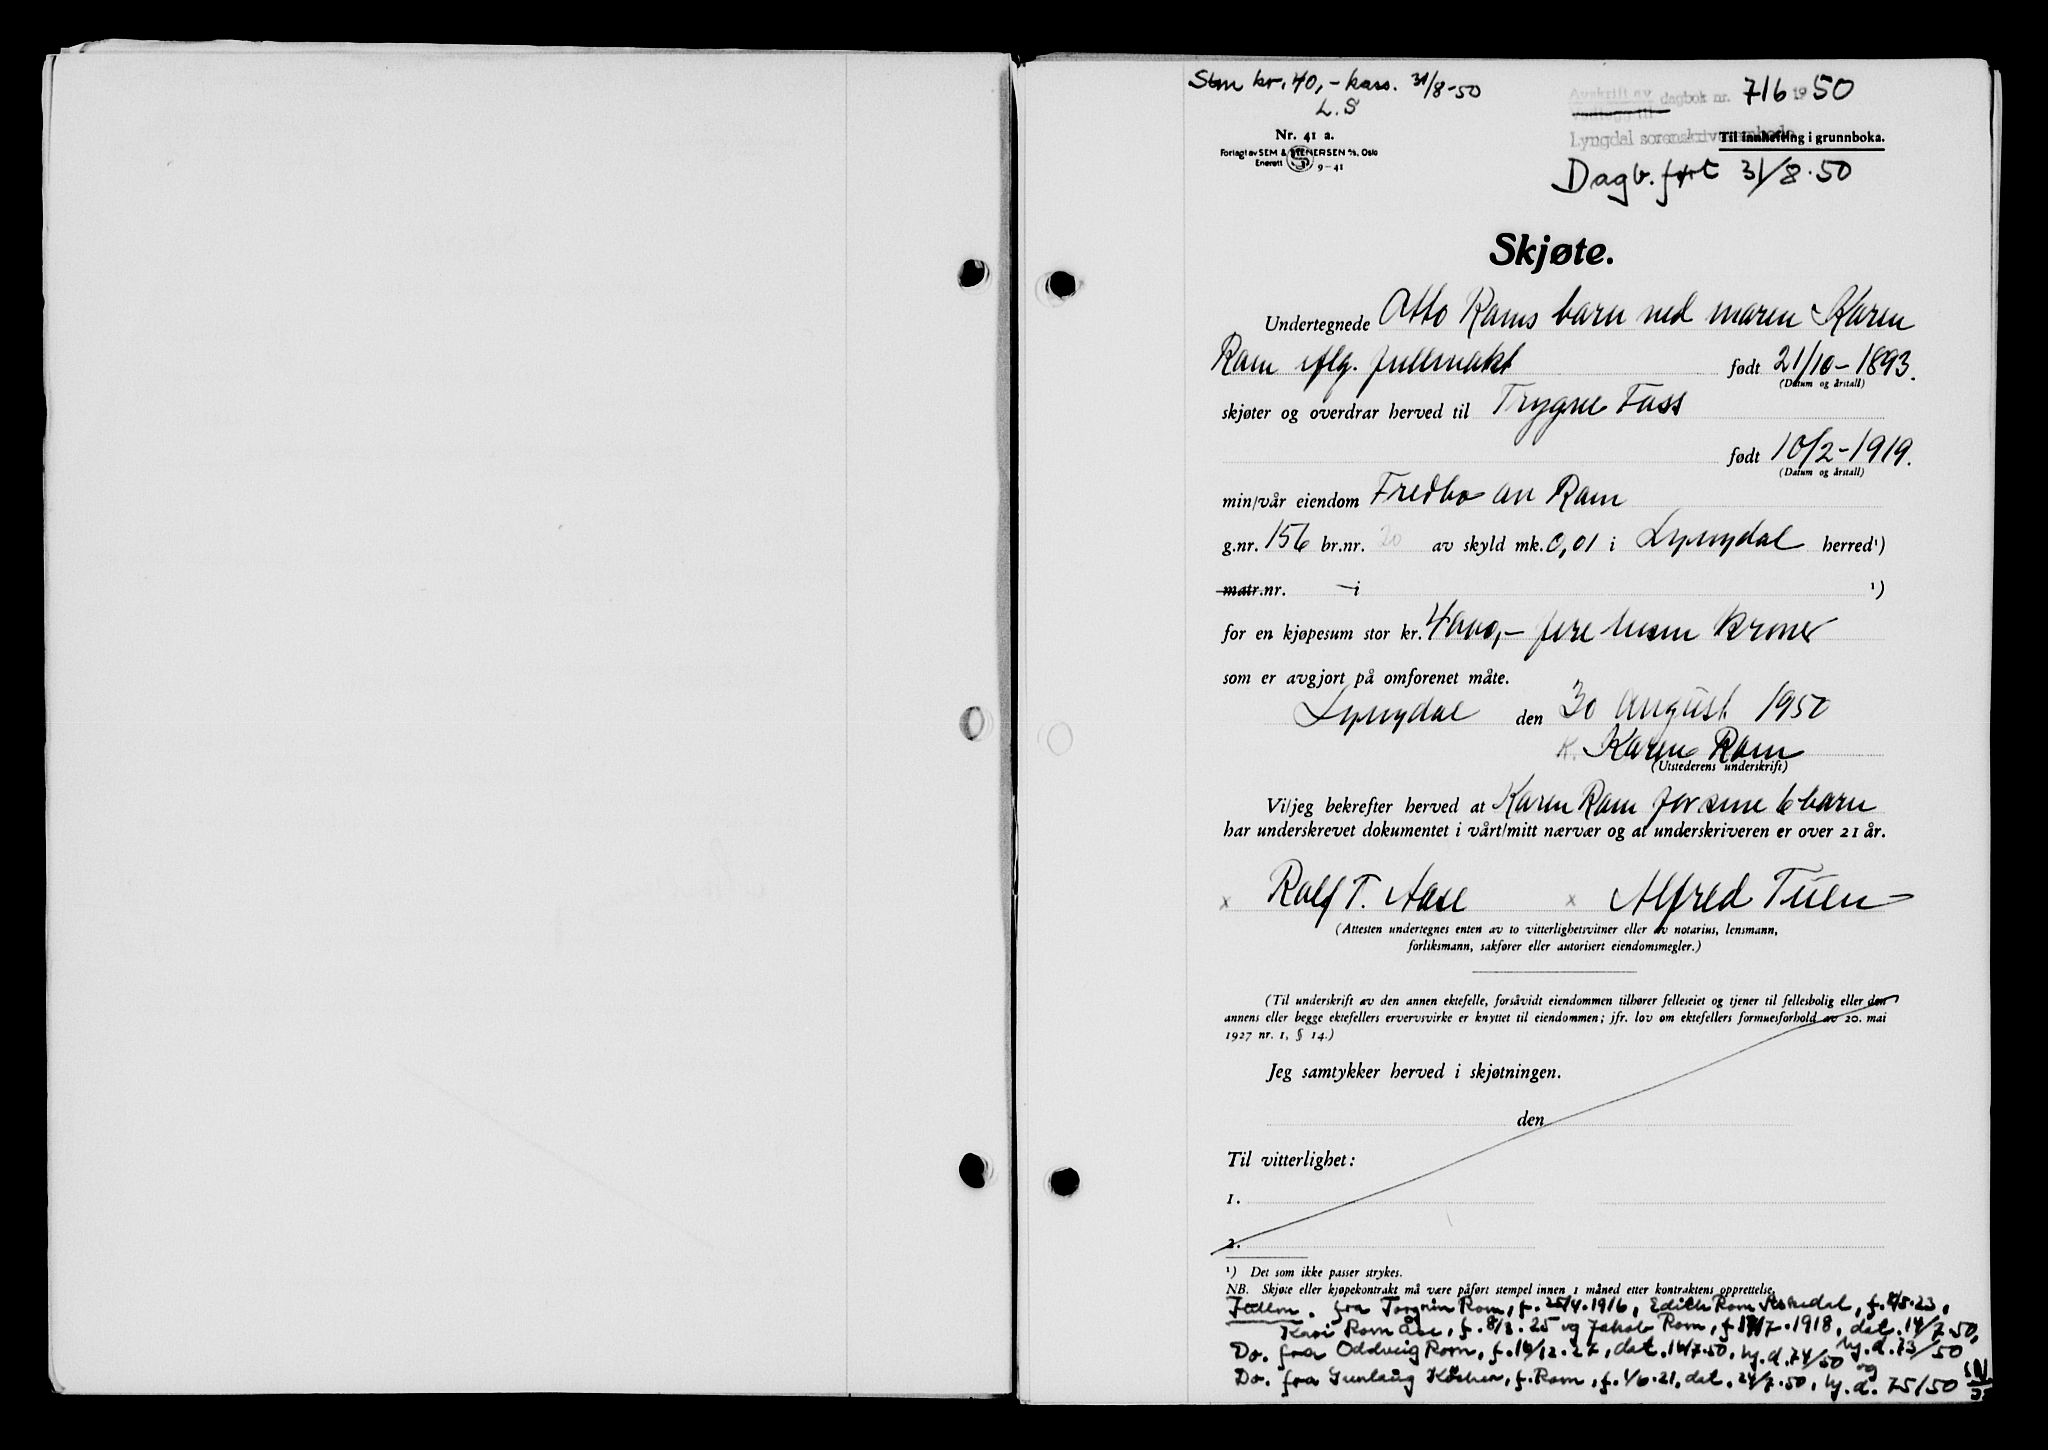 Stm kr. 40,- kass. 31/8-50
L.S
Avskrift av dagbok nr. 716 1950
Vedlegg til
Lyngdal sorenskriverembede
Nr. 41 a.
Til innhefting i grunnboka.
Forlagt av SEM & STENERSEN A/S, Oslo
Enerett S 9-41
Dagb. ført 31/8-50
Skjøte.
Undertegnede Otto Roms barn ved maren Karen
Rom iflg. fullmakt født 21/10-1893.
(Datum og årstall)
skjøter og overdrar herved til Trygve Foss
født 10/2-1919.
(Datum og årstall)
min/vår eiendom Fredbo av Rom
g.nr. 156 br.nr. 20 av skyld mk. 0,01 i Lyngdal herred¹)
matr.nr. - i ¹)
for en kjøpesum stor kr. 4000,- fire tusen kroner
som er avgjort på omforenet måte.
Lyngdal den 30 August 1950
K. Karen Rom
(Utstederens underskrift)
Vi/jeg bekrefter herved at Karen Rom for sine 6 barn
har underskrevet dokumentet i vårt/mitt nærvær og at underskriveren er over 21 år.
x Rolf T. Aase x Alfred Tuen
(Attesten undertegnes enten av to vitterlighetsvitner eller av notarius, lensmann,
forliksmann, sakfører eller autorisert eiendomsmegler.)
(Til underskrift av den annen ektefelle, forsåvidt eiendommen tilhører felleseiet og tjener til fellesbolig eller den
annens eller begge ektefellers ervervsvirke er knyttet til eiendommen; jfr. lov om ektefellers formuesforhold av 20. mai
1927 nr. 1, § 14.)
Jeg samtykker herved i skjøtningen.
den
Til vitterlighet:
1.
2.
¹) Det som ikke passer strykes.
NB. Skjøte eller kjøpekontrakt må være påført stempel innen 1 måned etter kontraktens opprettelse.
Fullm. fra Torgrim Rom, f. 25/4.1916, Edith Rom f. 23,
Kari Rom Åse, f. 8/3.25 og Jakob Rom, f. 1918, dat. 14/7.50,
Do. fra Oddveig Rom, f. 16/12.27, dat. 14/7.50, tgl. d. 74/50 tgl. d. 73/50
og
Do. fra Gunlaug f. Rom, f. 1/6.21, dat. 24/7.50, tgl. d. 75/50